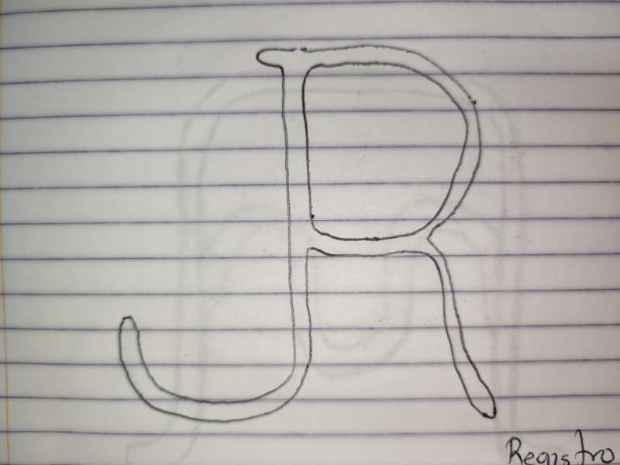 JR
Registro